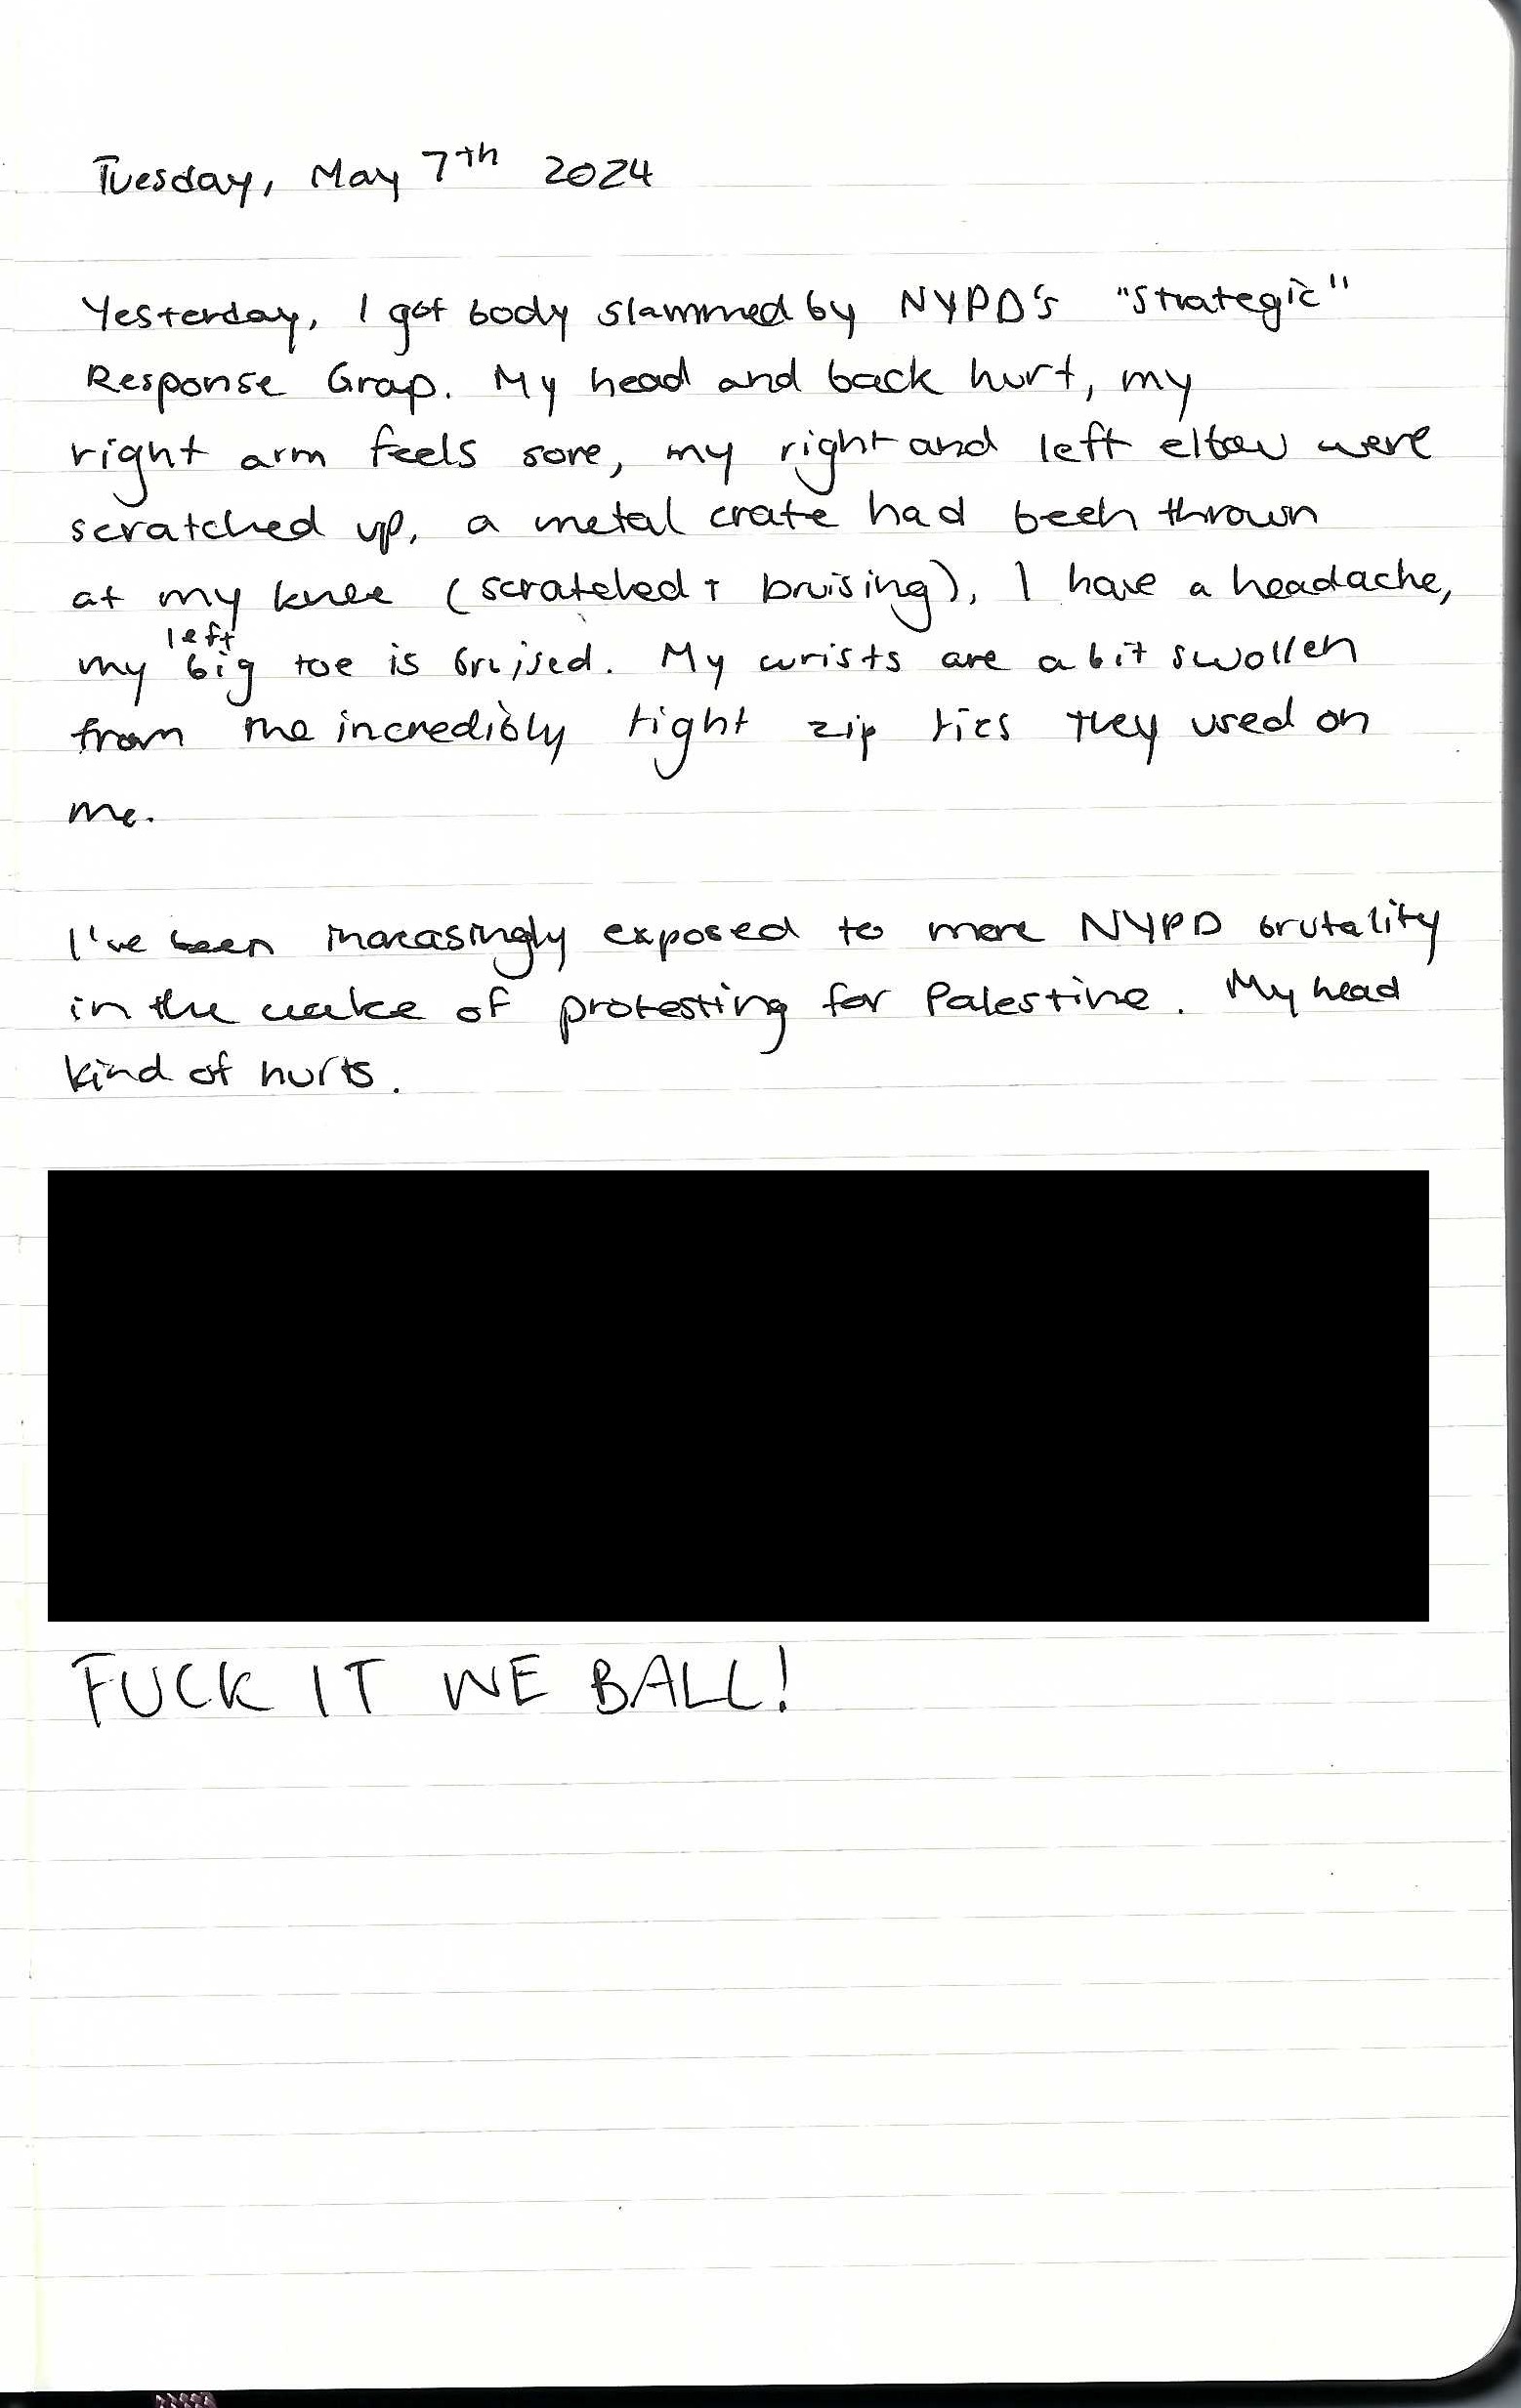 Tuesday, May 7th 2024
Yesterday, I got body slammed by NYPD's "Strategic"
Response Group. My head and back hurt, my
right arm feels sore, my right and left elbow were
scratched up, a metal crate had been thrown
at my knee (scratched + bruising), I have a headache,
left
my big toe is bruised. My wrists are a bit swollen
from the incredibly tight zip ties they used on
me.
I've been increasingly exposed to more NYPD brutality
in the wake of protesting for Palestine. My head
kind of hurts.
FUCK IT WE BALL!